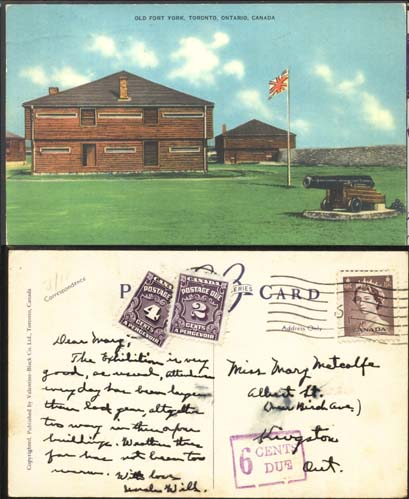 OLD FORT YORK, TORONTO, ONTARIO, CANADA
Correspondence
CARD
Address Only
Copyrighted. Published by Valentine-Black Co. Ltd., Toronto, Canada
CANADA
POSTAGE DUE
4
CENTS
A PERCEVOIR
CANADA
POSTAGE DUE
2
CENTS
A PERCEVOIR
CANADA
Dear Mary:
The Exhibition is very
good, as usual,
every day has been larger
than last year,
too warm in the
buildings. Weather thus
far has not been too
warm. With love
Uncle Will.
Miss Mary Metcalfe
Albert St.
Kingston
Ont.
6 CENTS
DUE